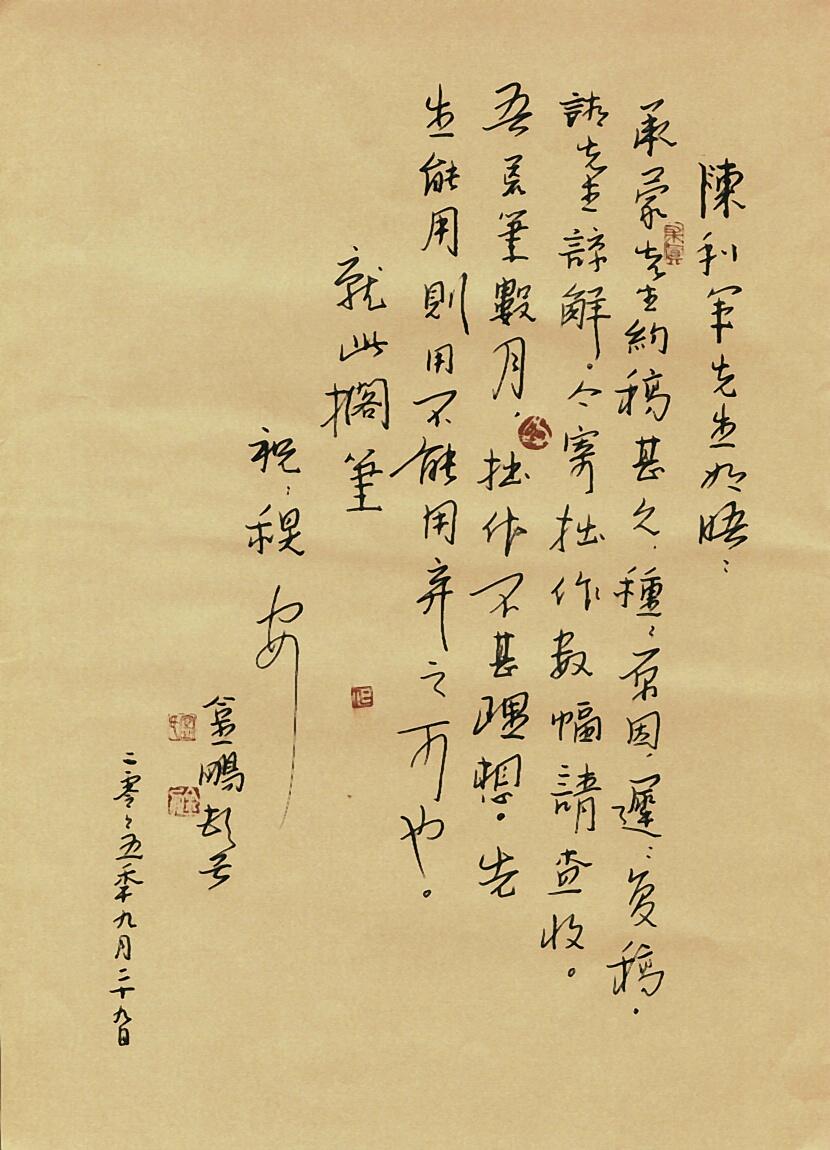 陳利軍先生如晤：
承蒙先生約稿甚久，種々原因，遲々復稿。
請先生諒解。今寄拙作數幅請查收。
吾若筆數月，拙作不甚理想。先
生能用則用不能用弃之可也。
就此擱筆
祝：稷安
金鵬頓首
二零々五年九月二十九日